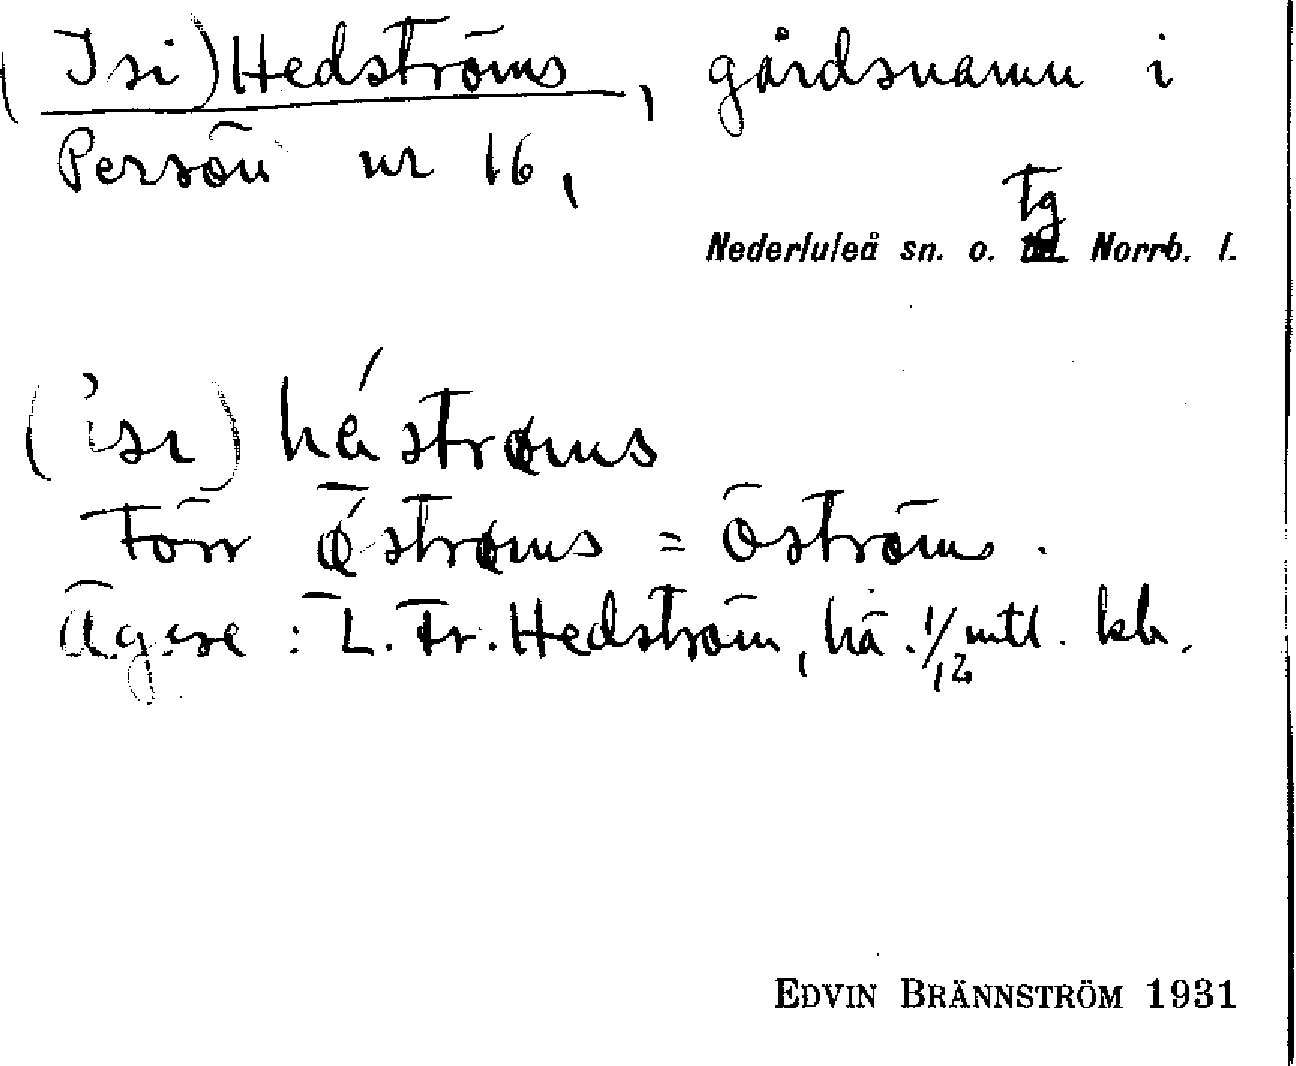 (Isi) Hedströms, gårdsnamn i
Persön nr 16,
Nederluleå sn. o. tg Norrb. l.
(isi) hástrøms
Förr ǿstrøms = Öströms.
Ägare: L. Fr. Hedström, hä. 1/12 mtl. kb.
EDVIN BRÄNNSTRÖM 1931